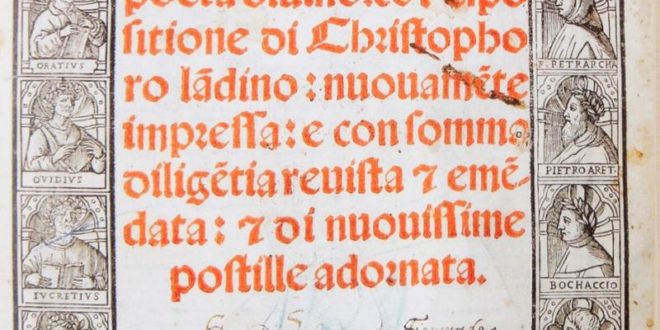 sitione di Christopho
ro lãdino : nuouamẽte
impressa: e con somma
diligẽtia reuista ⁊ emẽ-
data: ⁊ di nuouissime
postille adornata.
ORATIVS
OVIDIVS
LVCRETIVS
F. PETRARCHA
PIETRO ARET.
BOCHACCIO